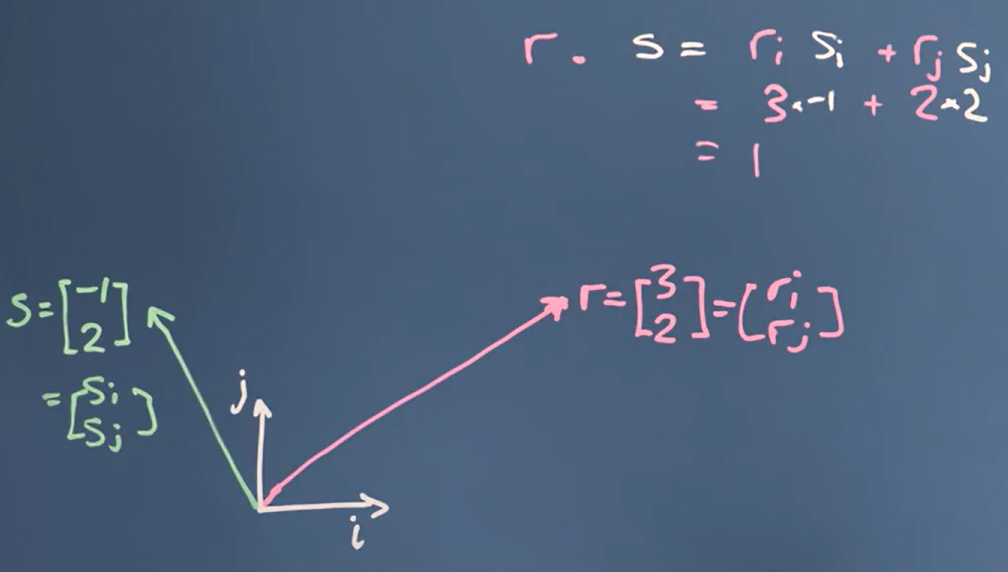 r . s = rᵢ sᵢ + rⱼ sⱼ
= 3×-1 + 2×2
= 1
s = [-1
2]
= [sᵢ
sⱼ]
r = [3
2] = [rᵢ
rⱼ]
j
i